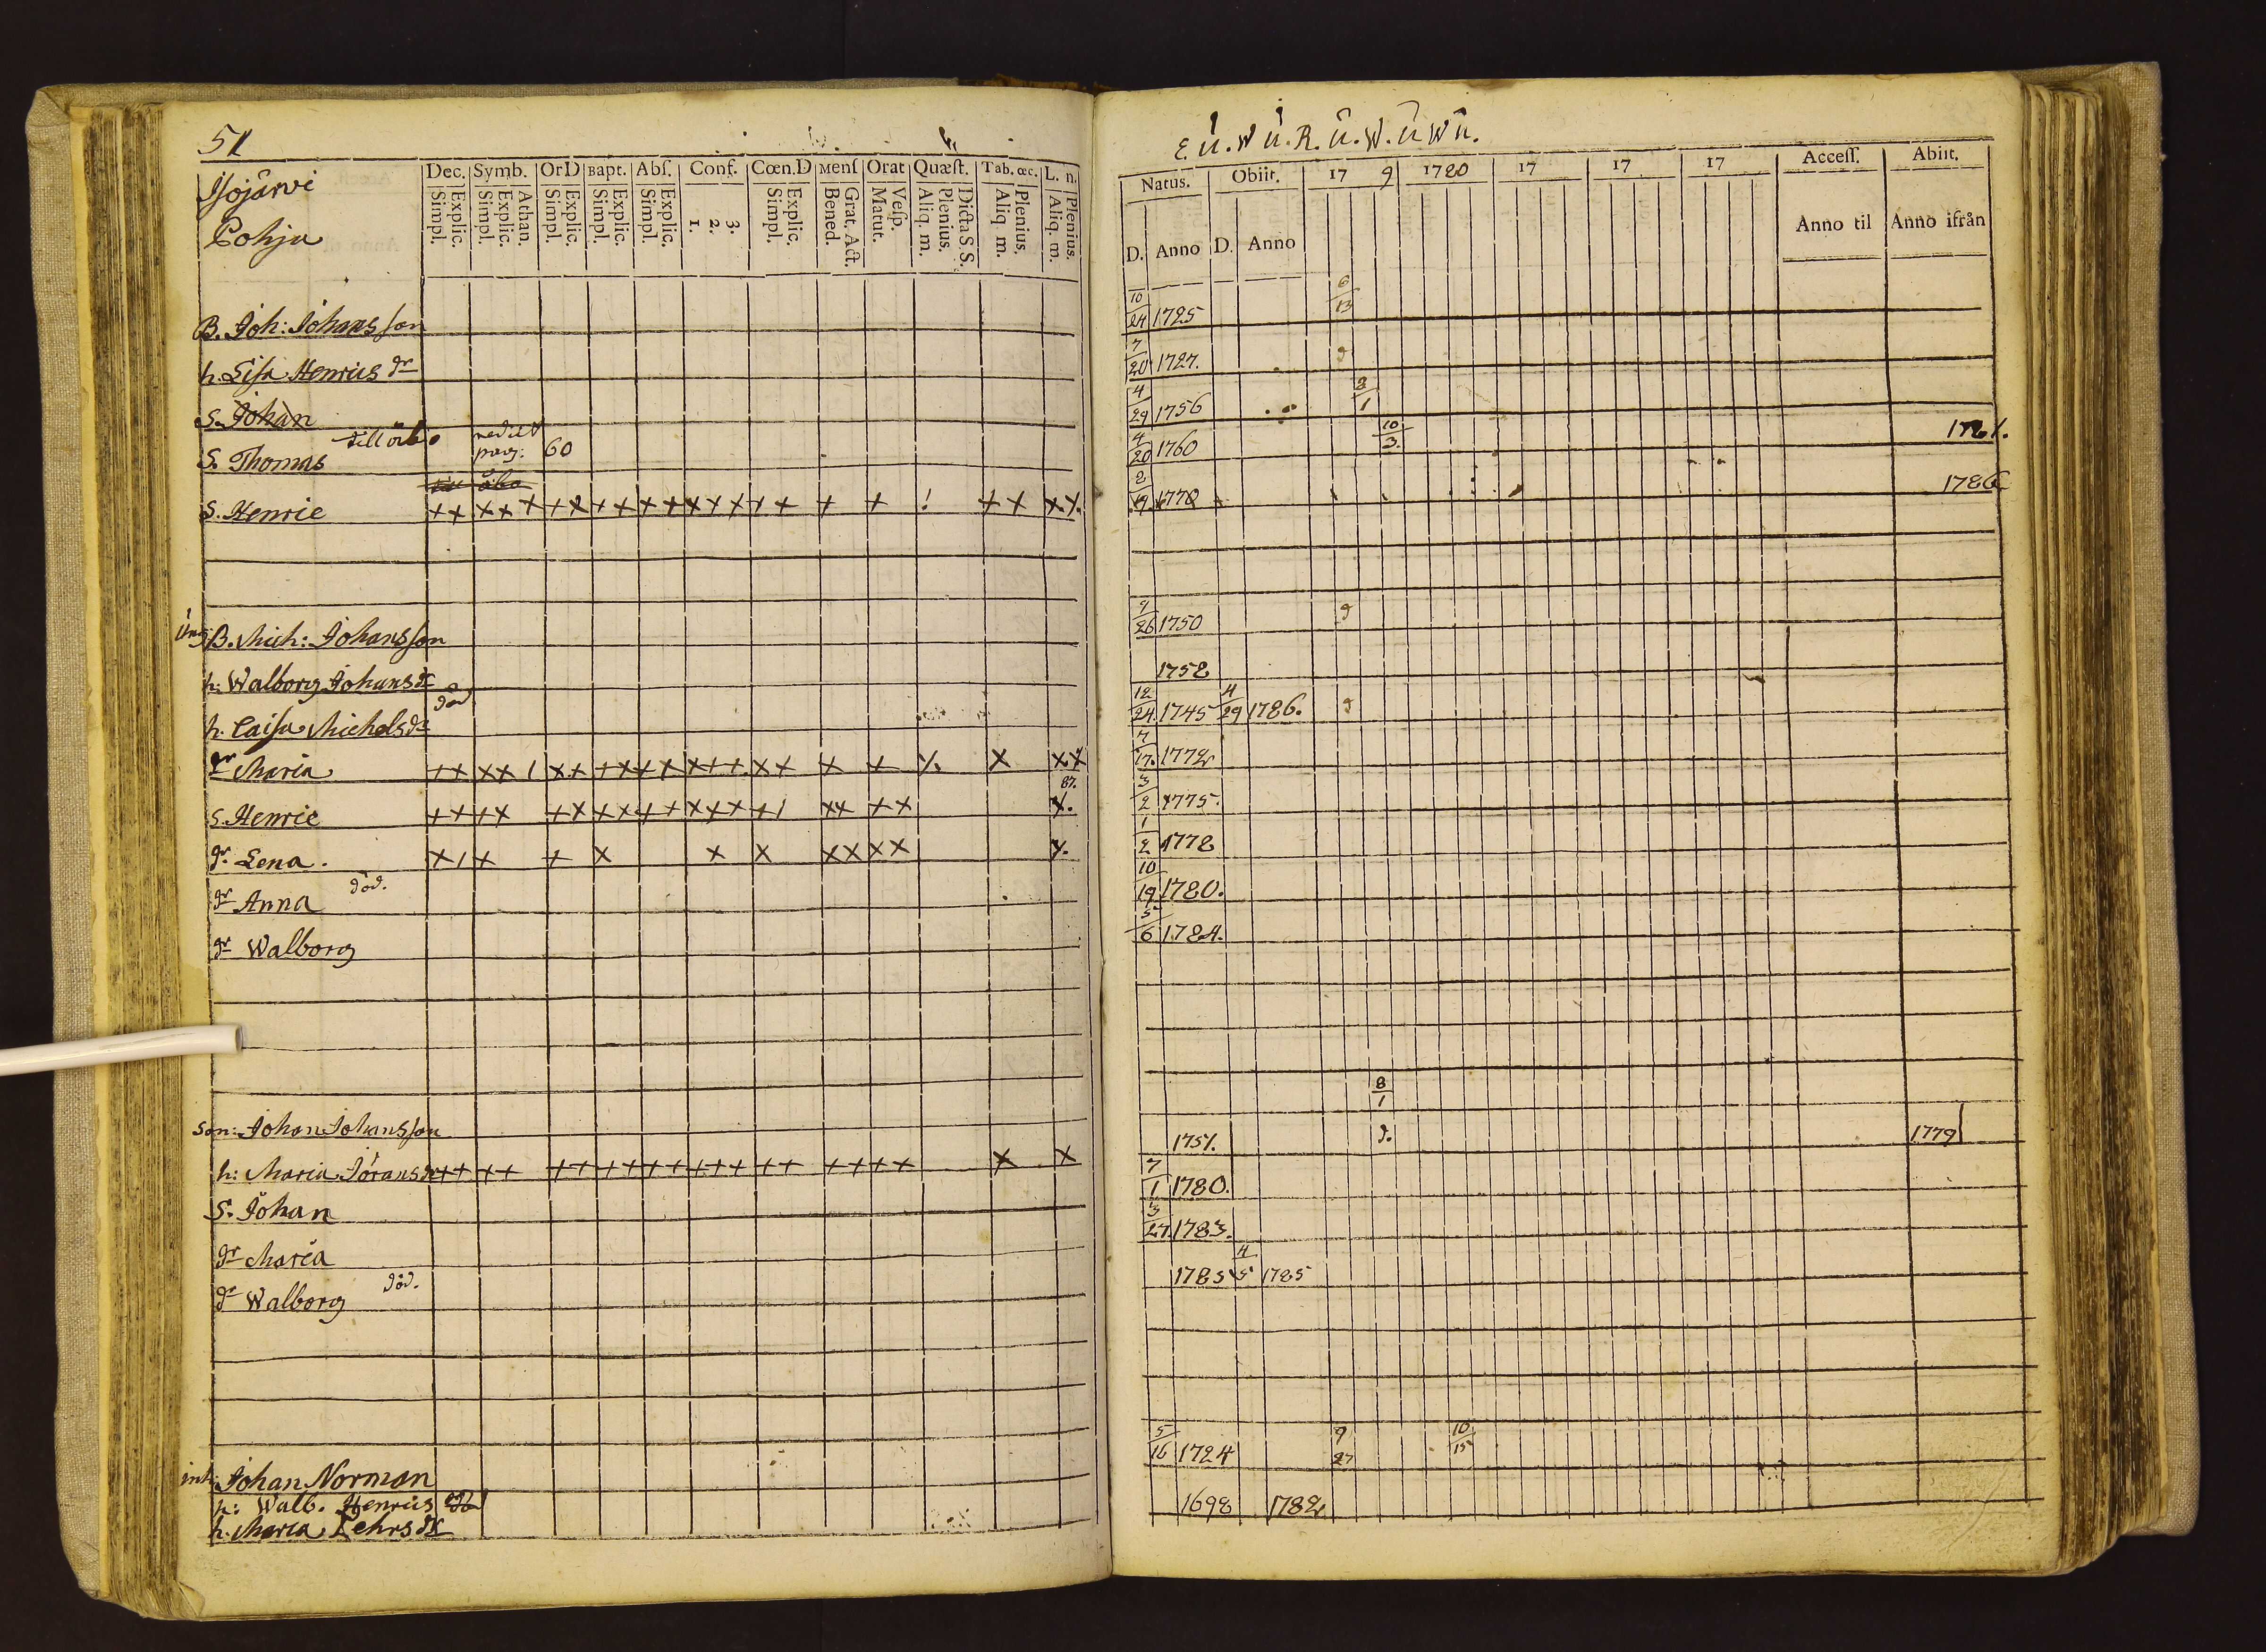 51
Isojärvi
Pohja
Dec. Symb. OrD Bapt. Abſ. Conf. Cœn.D Menſ Orat Quæſt. Tab. œc. L. n.
Explic. Simpl. Athan. Explic. Simpl. Explic. Simpl. Explic. Simpl. Explic. Simpl. 3. 2. 1. Explic. Simpl. Grat. Act. Bened. Veſp. Matut. Dicta S. S. Plenius. Aliq. m. Plenius. Aliq. m. Plenius. Aliq. m.
B. Joh: Johansson
h. Lisa Henricsdr
S. Johan
S. Thomas till Åbo 60
till Åbo
S. Henric
B. Mich: Johansson
h: Walborg Johansdr
h. Caisa Michelsdr död
dr Maria
87.
S. Henric
dr. Lena.
dr Anna död.
dr Walborg
Son: Johan Johansson
h: Maria Jöransdr
S. Johan
dr Maria
dr Walborg död.
inh: Johan Norman
h: Walb. Henricsdr
h. Maria Pehrsdr
E. Ü. W Ü. R. Ü. W. Ü W Ü.
Natus. Obiit. 17 9 1780 17 17 17 Acceſſ. Abiit.
D. Anno D. Anno Anno til Anno ifrån
10/24 1725 6/13
7/20 1727.
4/29 1756 8/1
4/20 1760 10/3. 1781.
2/9. 1770 1786
9/26 1750
1758
12/24. 1745 4/29 1786.
7/17. 1772
3/2 1775.
1/2 1778
10/19 1780.
5/6 1784.
8/1
1757. 1779
7/1 1780.
3/27. 1783.
1785 4/5 1785
5/16 1724 9/27 10/15
1698 1782